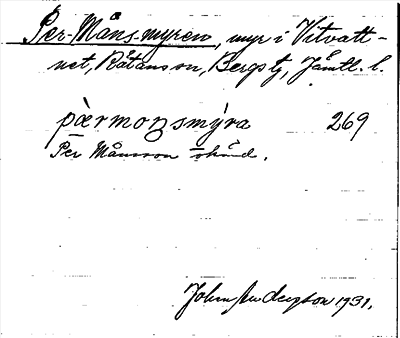 Per-Måns-myren, myr i Vitvatt-
net, Råtans sn, Bergs tg, Jämtl. l.
pærmoꞑsmýra 269
Per Månsson okänd.
John Anderson 1931.